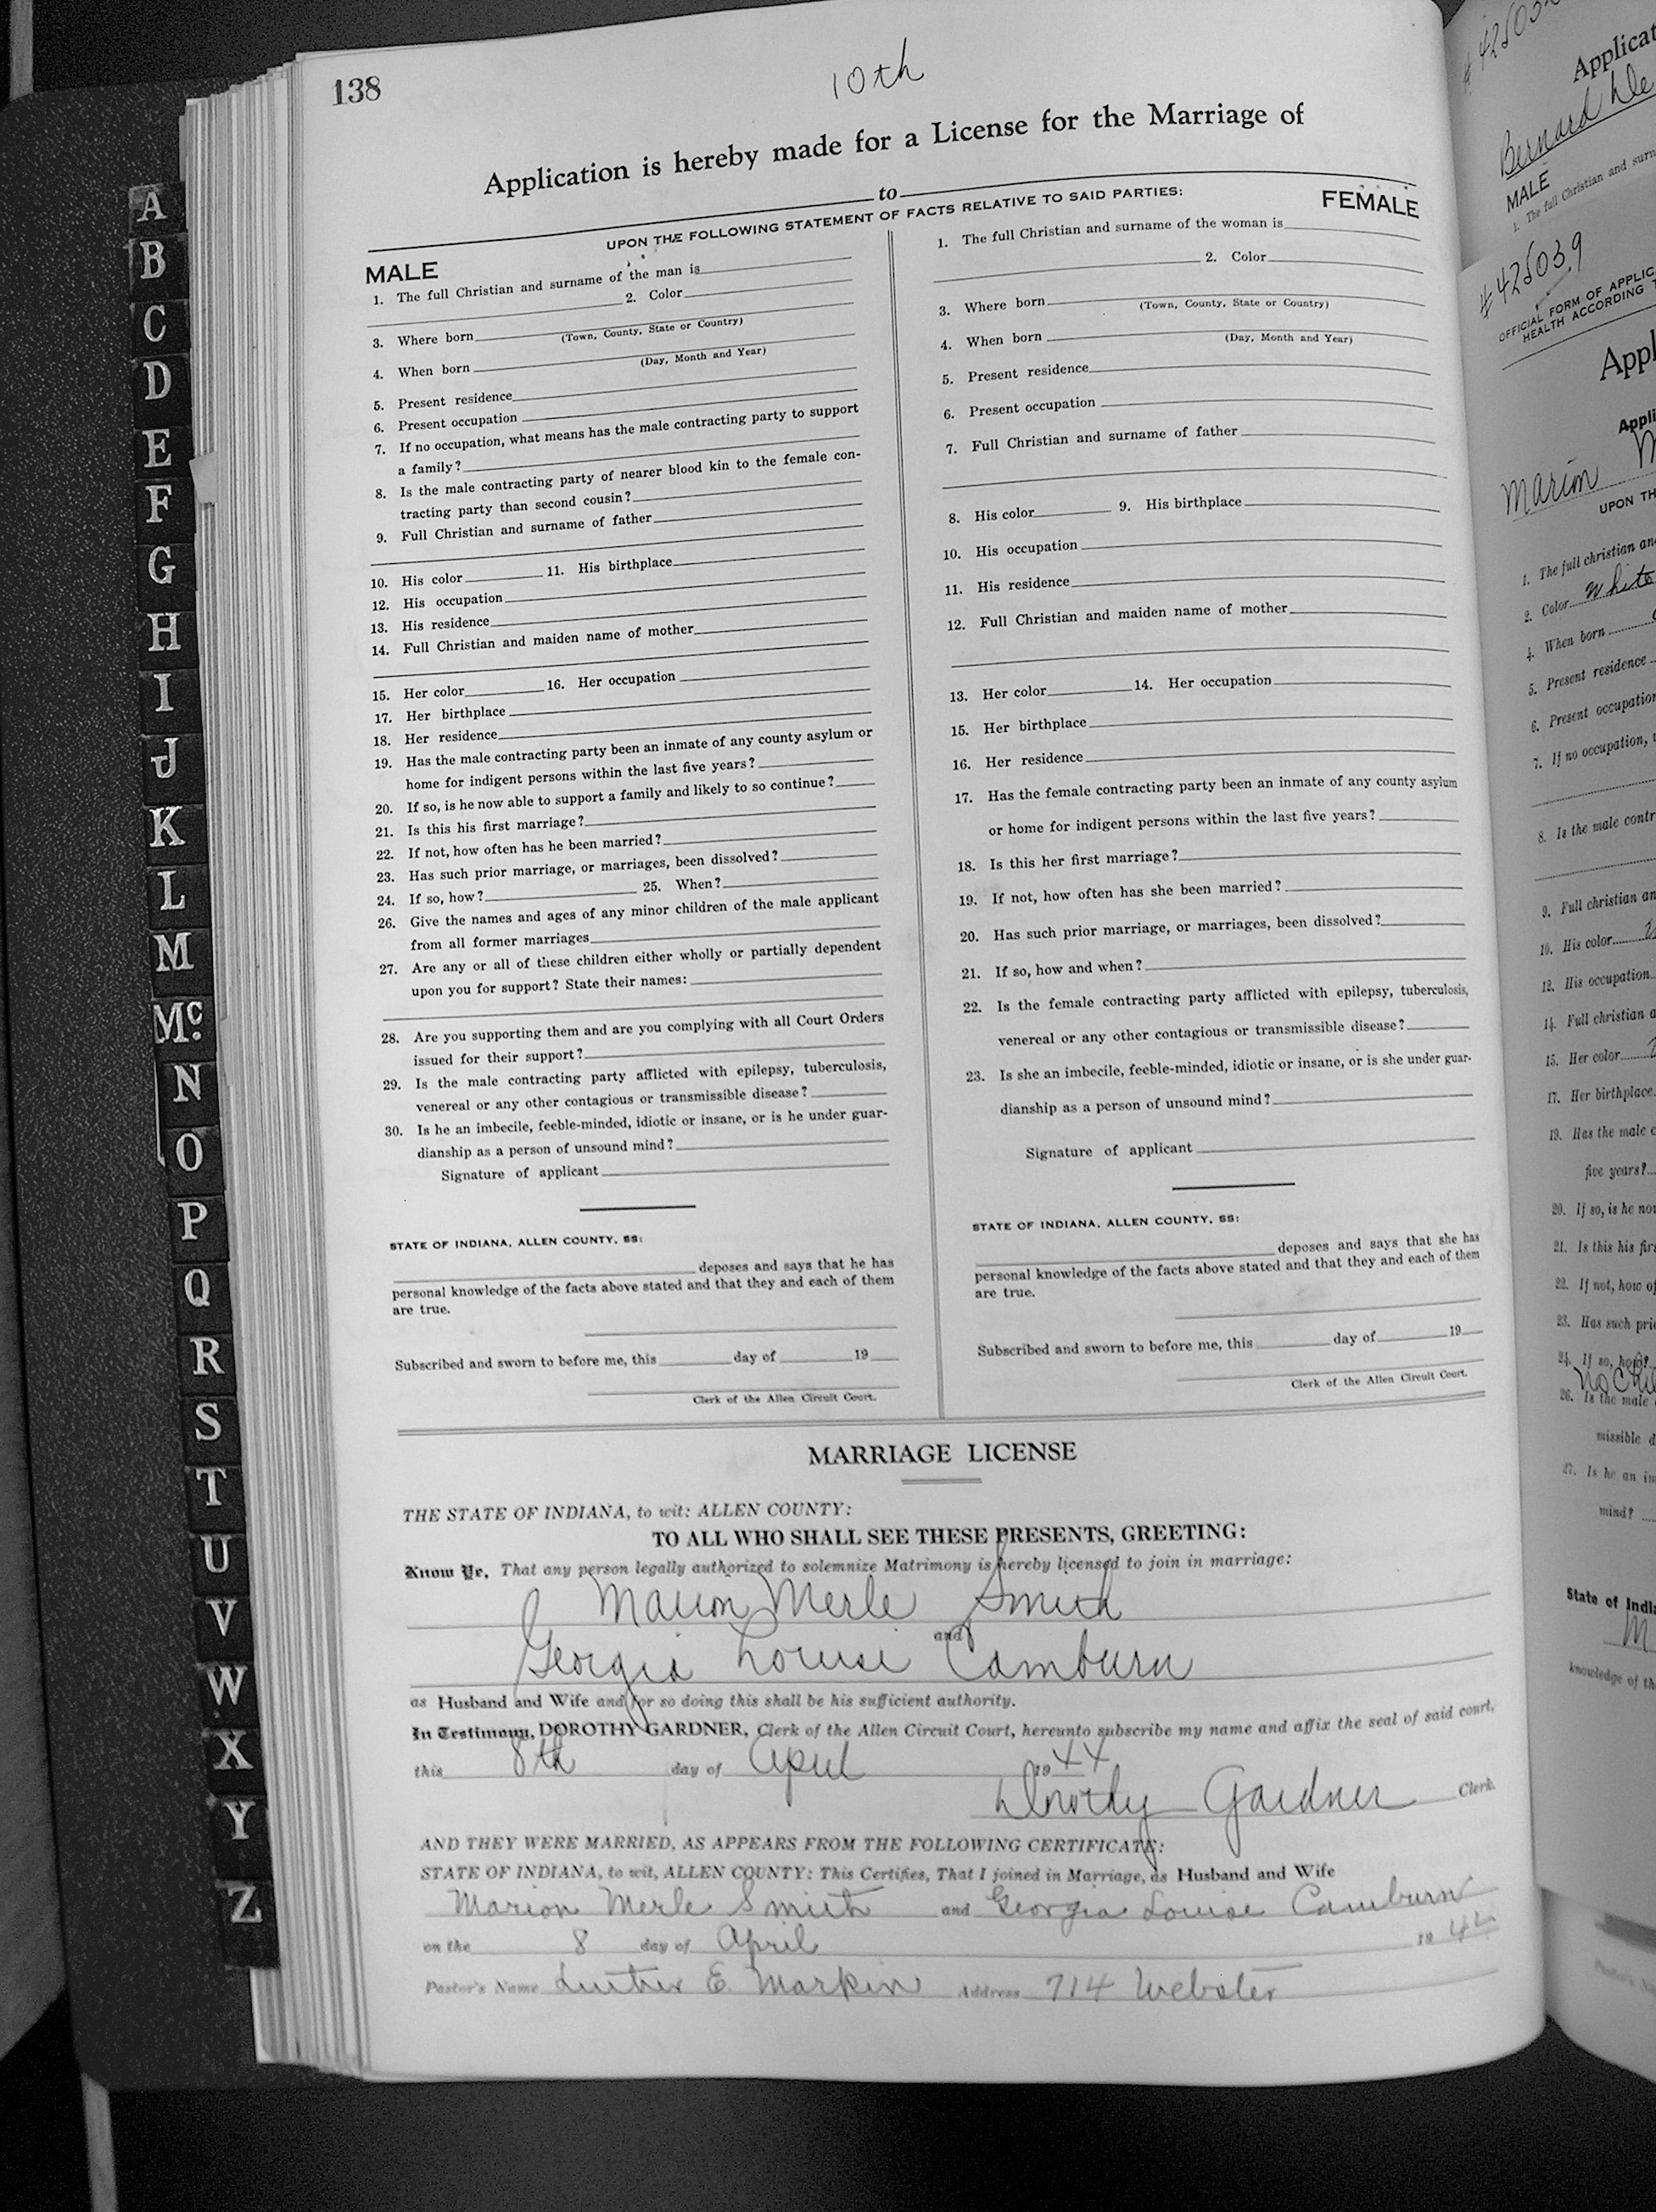 138
10th
Application is hereby made for a License for the Marriage of
to
UPON THE FOLLOWING STATEMENT OF FACTS RELATIVE TO SAID PARTIES:
MALE
1. The full Christian and surname of the man is
2. Color
3. Where born
(Town, County, State or Country)
4. When born
(Day, Month and Year)
5. Present residence
6. Present occupation
7. If no occupation, what means has the male contracting party to support
a family?
8. Is the male contracting party of nearer blood kin to the female con-
tracting party than second cousin?
9. Full Christian and surname of father
10. His color 11. His birthplace
12. His occupation
13. His residence
14. Full Christian and maiden name of mother
15. Her color 16. Her occupation
17. Her birthplace
18. Her residence
19. Has the male contracting party been an inmate of any county asylum or
home for indigent persons within the last five years?
20. If so, is he now able to support a family and likely to so continue?
21. Is this his first marriage?
22. If not, how often has he been married?
23. Has such prior marriage, or marriages, been dissolved?
24. If so, how? 25. When?
26. Give the names and ages of any minor children of the male applicant
from all former marriages
27. Are any or all of these children either wholly or partially dependent
upon you for support? State their names:
28. Are you supporting them and are you complying with all Court Orders
issued for their support?
29. Is the male contracting party afflicted with epilepsy, tuberculosis,
venereal or any other contagious or transmissible disease?
30. Is he an imbecile, feeble-minded, idiotic or insane, or is he under guar-
dianship as a person of unsound mind?
Signature of applicant
STATE OF INDIANA, ALLEN COUNTY, SS:
deposes and says that he has
personal knowledge of the facts above stated and that they and each of them
are true.
Subscribed and sworn to before me, this day of 19
Clerk of the Allen Circuit Court.
FEMALE
1. The full Christian and surname of the woman is
2. Color
3. Where born
(Town, County, State or Country)
4. When born
(Day, Month and Year)
5. Present residence
6. Present occupation
7. Full Christian and surname of father
8. His color 9. His birthplace
10. His occupation
11. His residence
12. Full Christian and maiden name of mother
13. Her color 14. Her occupation
15. Her birthplace
16. Her residence
17. Has the female contracting party been an inmate of any county asylum
or home for indigent persons within the last five years?
18. Is this her first marriage?
19. If not, how often has she been married?
20. Has such prior marriage, or marriages, been dissolved?
21. If so, how and when?
22. Is the female contracting party afflicted with epilepsy, tuberculosis,
venereal or any other contagious or transmissible disease?
23. Is she an imbecile, feeble-minded, idiotic or insane, or is she under guar-
dianship as a person of unsound mind?
Signature of applicant
STATE OF INDIANA, ALLEN COUNTY, SS:
deposes and says that she has
personal knowledge of the facts above stated and that they and each of them
are true.
Subscribed and sworn to before me, this day of 19
Clerk of the Allen Circuit Court.
MARRIAGE LICENSE
THE STATE OF INDIANA, to wit: ALLEN COUNTY:
TO ALL WHO SHALL SEE THESE PRESENTS, GREETING:
Know Ye, That any person legally authorized to solemnize Matrimony is hereby licensed to join in marriage:
Marion Merle Smith
and
Georgia Louise Camburn
as Husband and Wife and for so doing this shall be his sufficient authority.
In Testimony, DOROTHY GARDNER, Clerk of the Allen Circuit Court, hereunto subscribe my name and affix the seal of said court,
this 8th day of April 1944
Dorothy Gardner Clerk.
AND THEY WERE MARRIED, AS APPEARS FROM THE FOLLOWING CERTIFICATE:
STATE OF INDIANA, to wit, ALLEN COUNTY: This Certifies, That I joined in Marriage, as Husband and Wife
Marion Merle Smith and Georgia Louise Camburn
on the 8 day of April 1944
Pastor's Name Luther E. Markin Address 714 Webster
A
B
C
D
E
F
G
H
I
J
K
L
M
Mc.
N
O
P
Q
R
S
T
U
V
W
X
Y
Z
Applicat
Bernard
MALE
1. The full Christian and surn
#425039
OFFICIAL FORM OF APPLIC
HEALTH ACCORDING T
Appl
Appli
Marion M
UPON TH
1. The full christian an
2. Color White
4. When born
5. Present residence
6. Present occupation
7. If no occupation,
8. Is the male contr
9. Full christian an
10. His color
12. His occupation
14. Full christian a
15. Her color
17. Her birthplace
19. Has the male c
five years?
20. If so, is he no
21. Is this his fir
22. If not, how of
23. Has such pri
24. If so, how?
No Chil
26. Is the male
missible d
27. Is he an im
mind?
State of Indi
M
knowledge of th